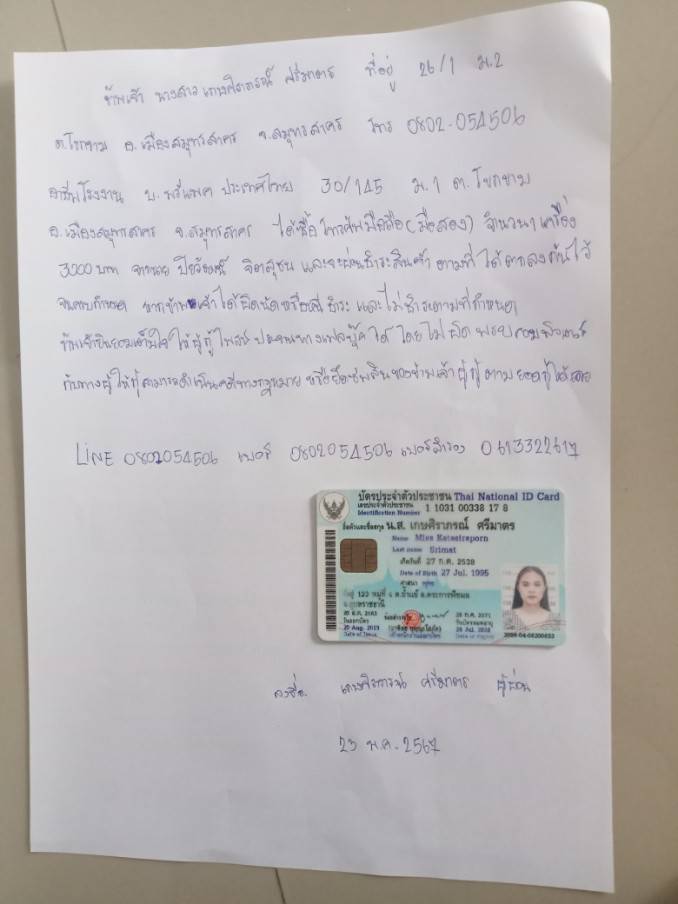 ข้าพเจ้า นางสาว เกษศิราภรณ์ ศรีมาตร ที่อยู่ 26/1 ม.2
ต.โคกขาม อ.เมืองสมุทรสาคร จ.สมุทรสาคร โทร 0802-054506
อาชีพโรงงาน บ. ประเทศไทย 30/145 ม.1 ต.โคกขาม
อ.เมืองสมุทรสาคร จ.สมุทรสาคร ได้ซื้อโทรศัพมือถือ(มือสอง) จำนวน 1 เครื่อง
3000 บาท จากนาย และจะผ่อนชำระสินค้า ตามที่ได้ตกลงกันไว้
จนครบกำหนด หากข้าพเจ้าได้ผิดนัดหรือหนีชำระ และไม่ชำระตามที่กำหนด
ข้าพเจ้ายินยอมเต็มใจ ให้ผู้กู้โพสประจานทางเฟสบุ๊คได้ โดยไม่ผิด พรบคอมพิวเตอร์
กับทางผู้ให้กู้สามารถดำเนินคดีทางกฎหมาย หรือยึดทรัพสินของข้าพเจ้าผู้กู้ ตามยอดกู้ได้เลย
LINE 0802054506 เบอร์ 0802054506 เบอร์สำรอง 0613322617
บัตรประจำตัวประชาชน Thai National ID Card
เลขประจำตัวประชาชน 1 1031 00338 17 8
Identification Number
ชื่อตัวและชื่อสกุล น.ส. เกษศิราภรณ์ ศรีมาตร
Name Miss Katesiraporn
Last name Srimat
เกิดวันที่ 27 ก.ค. 2538
Date of Birth 27 Jul. 1995
ศาสนา พุทธ
ที่อยู่ 123 หมู่ที่
จ.อุบลราชธานี
วันออกบัตร
Date of Issue
Date of Expiry
ลงชื่อ เกษศิราภรณ์ ศรีมาตร ผู้ผ่อน
23 พ.ค. 2567